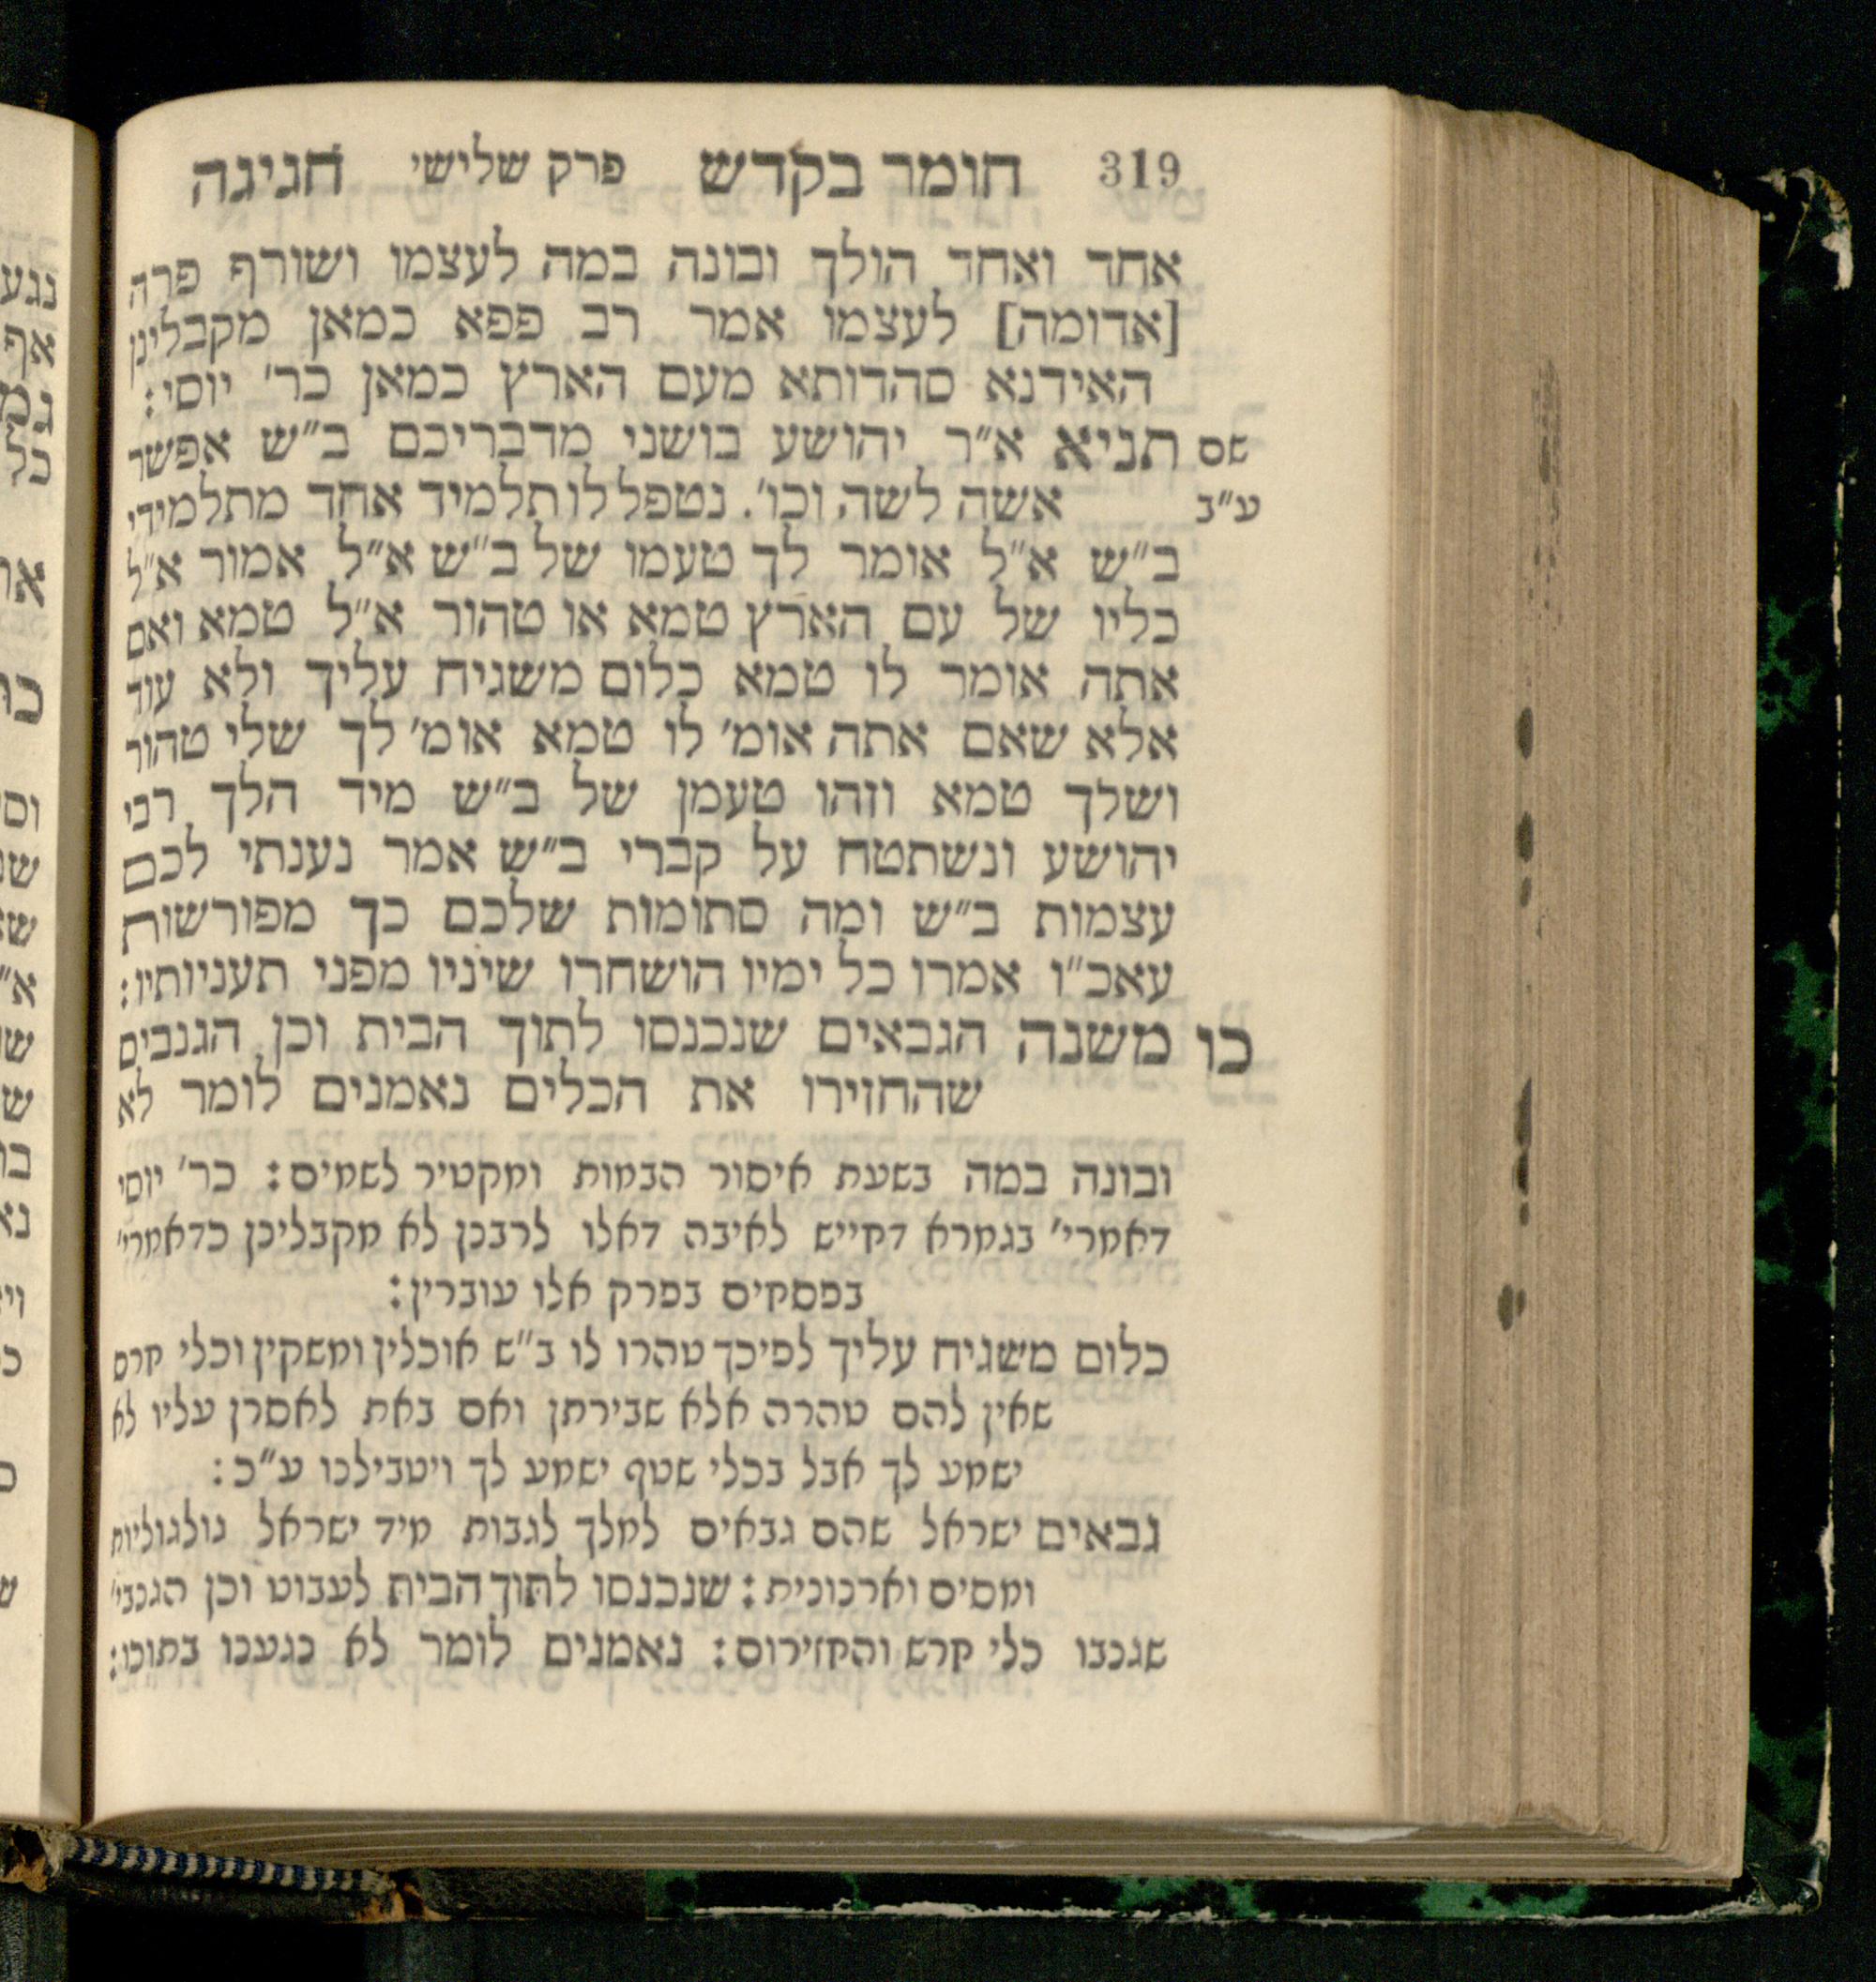 319 חומר בקדש פרק שלישי חגיגה
אחד ואחד הולך ובונה במה לעצמו ושורף פרה
[אדומה] לעצמו אמר רב פפא כמאן מקבלינן
האידנא סהדותא מעם הארץ כמאן כר׳ יוסי:
שם תניא א״ר יהושע בושני מדבריכם ב״ש אפשר
ע״ב אשה לשה וכו׳. נטפל לו תלמיד אחד מתלמידי
ב״ש א״ל אומר לך טעמו של ב״ש א״ל אמור א״ל
כליו של עם הארץ טמא או טהור א״ל טמא ואם
אתה אומר לו טמא כלום משגיח עליך ולא עוד
אלא שאם אתה אומ׳ לו טמא אומ׳ לך שלי טהור
ושלך טמא וזהו טעמן של ב״ש מיד הלך רבי
יהושע ונשתטח על קברי ב״ש אמר נענתי לכם
עצמות ב״ש ומה סתומות שלכם כך מפורשות
עאכ״ו אמרו כל ימיו הושחרו שיניו מפני תעניותיו:
כו משנה הגבאים שנכנסו לתוך הבית וכן הגנבים
שהחזירו את הכלים נאמנים לומר לא
ובונה במה בשעת איסור הבמות ומקטיר לשמים: כר׳ יוסי
דאמרי׳ בגמרא דחייש לאיבה דאלו לרבנן לא מקבלינן כדאמרי׳
בפסחים בפרק אלו עוברין:
כלום משגיח עליך לפיכך טהרו לו ב״ש אוכלין ומשקין וכלי חרס
שאין להם טהרה אלא שבירתן ואם באת לאסרן עליו לא
ישמע לך אבל בכלי שטף ישמע לך ויטבילנו ע״כ:
גבאים ישראל שהם גבאים למלך לגבות מיד ישראל גולגוליות
ומסים וארנוניות: שנכנסו לתוך הבית לעבוט וכן הגנבי׳
שגנבו כלי חרש והחזירום: נאמנים לומר לא נגענו בתוכו: